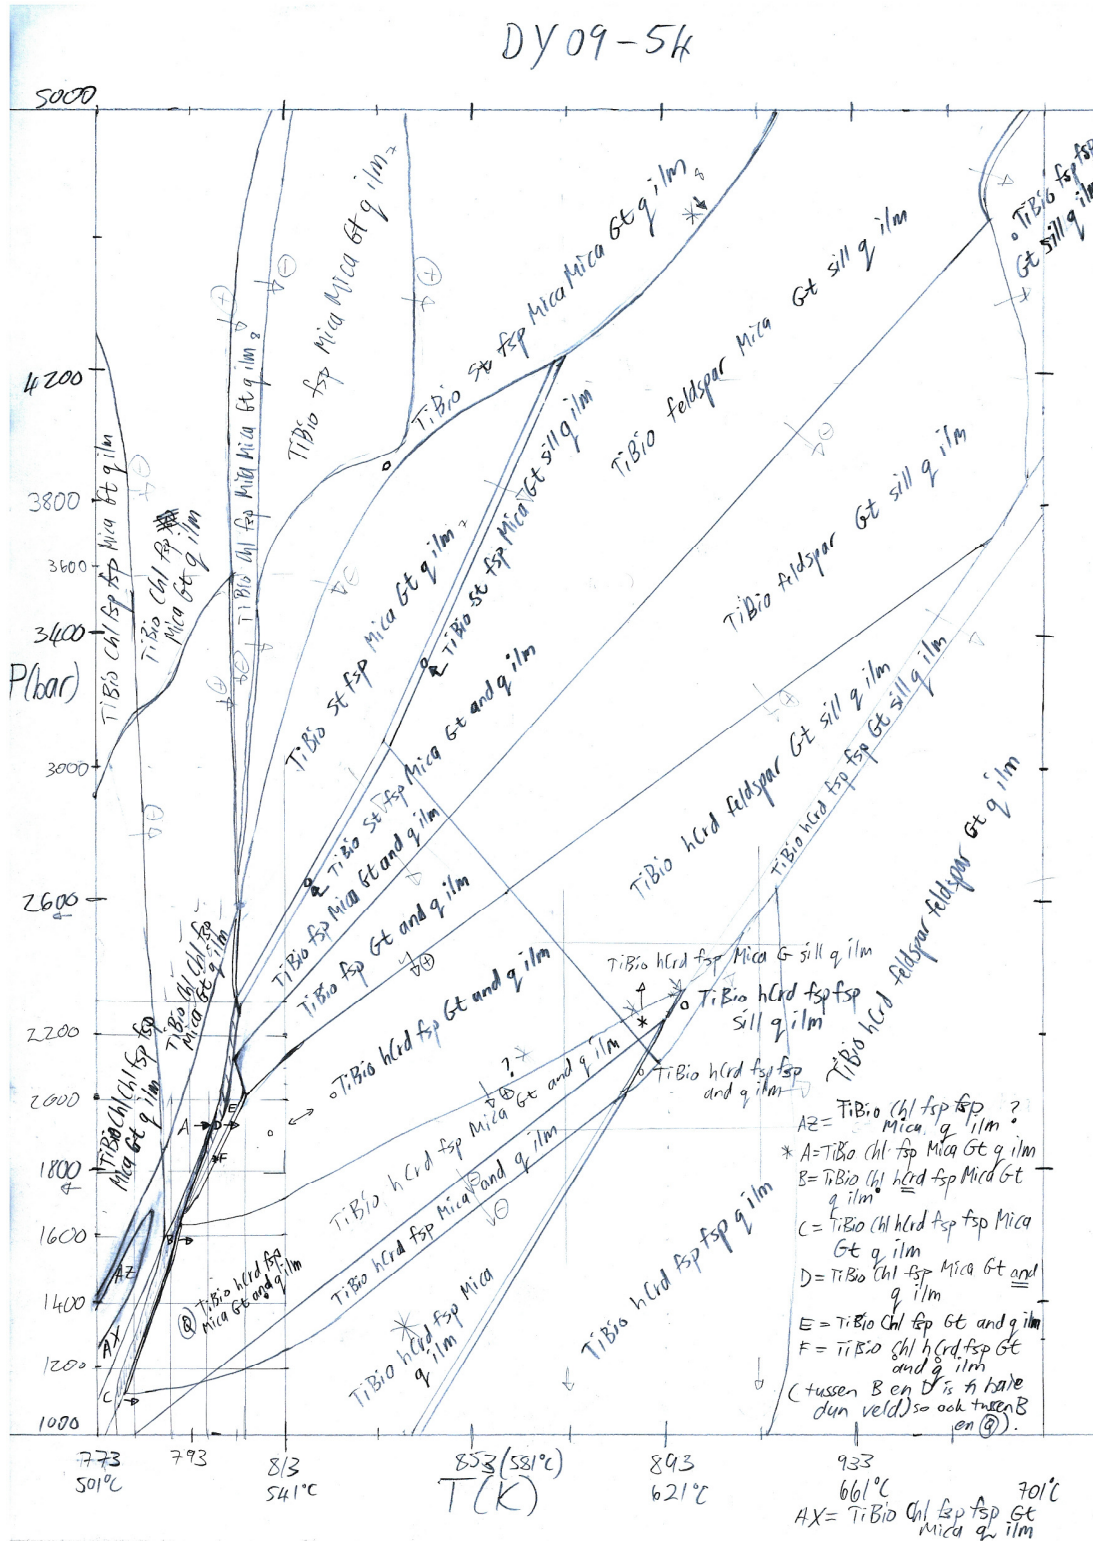 DY09-54
5000
4200
3800
3600
3400
P(bar)
3000
2600
2200
2000
1800
1600
1400
1200
1000
773
501°C
793
813
541°C
853(581°C)
T(K)
893
621°C
933
661°C
701°C
TiBio Chl fsp fsp Mica Gt q ilm
TiBio Chl fsp
Mica Gt q ilm
TiBio Chl fsp Mica Mica Gt q ilm
TiBio fsp Mica Mica Gt q ilm
TiBio st fsp Mica Mica Gt q ilm
TiBio feldspar Mica Gt sill q ilm
TiBio fsp fsp
Gt sill q ilm
TiBio st fsp Mica Gt q ilm
TiBio st fsp Mica Gt sill q ilm
TiBio feldspar Gt sill q ilm
TiBio st fsp Mica Gt and q ilm
TiBio fsp Mica Gt and q ilm
TiBio fsp Gt and q ilm
TiBio hCrd feldspar Gt sill q ilm
TiBio hCrd fsp fsp Gt sill q ilm
TiBio hCrd feldspar feldspar Gt q ilm
TiBio Chl Chl fsp
Mica Gt q ilm
TiBio Chl Chl fsp fsp
Mica Gt q ilm
TiBio hCrd fsp Gt and q ilm
TiBio hCrd fsp Mica G sill q ilm
TiBio hCrd fsp fsp
sill q ilm
TiBio hCrd fsp fsp
and q ilm
?
TiBio hCrd fsp Mica Gt and q ilm
TiBio hCrd fsp Mica and q ilm
Q TiBio hCrd fsp
Mica Gt and q ilm
TiBio hCrd fsp Mica
q ilm
TiBio hCrd fsp fsp q ilm
A
D
E
F
B
C
AZ
AX
AZ= TiBio Chl fsp fsp ?
Mica q ilm
* A=TiBio Chl fsp Mica Gt q ilm
B= TiBio Chl hCrd fsp Mica Gt
q ilm
C= TiBio Chl hCrd fsp fsp Mica
Gt q ilm
D= TiBio Chl fsp Mica Gt and
q ilm
E = TiBio Chl fsp Gt and q ilm
F = TiBio Chl hCrd fsp Gt
and q ilm
(tussen B en D is 'n baie
dun veld) so ook tussen B
en Q).
AX= TiBio Chl fsp fsp Gt
Mica q ilm